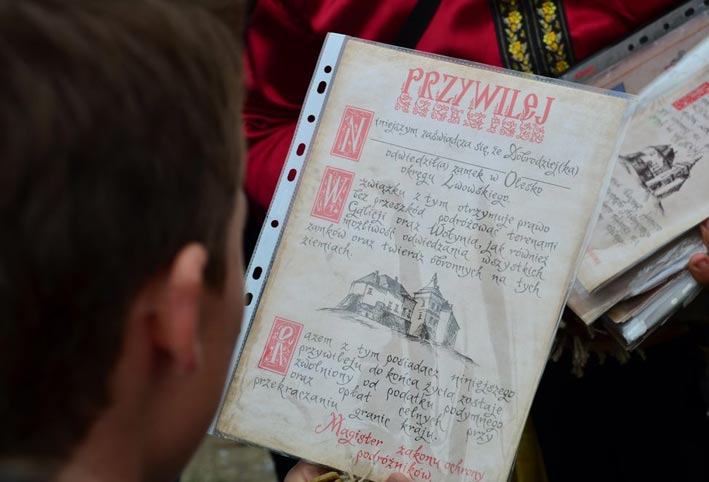 PRZYWILEJ
Niniejszym zaświadcza się, że Dobrodziej(ka)
odwiedził(a) zamek w Olesko
okręgu Lwowskiego.
W związku z tym otrzymuje prawo
bez przeszkód podróżować terenami
Galicji oraz Wołynia, jak również
możliwość odwiedzania wszystkich
zamków oraz twierdz obronnych na tych
ziemiach.
Razem z tym posiadacz niniejszego
przywileju do końca życia zostaje
zwolniony od podatku podymnego
oraz opłat celnych przy
przekraczaniu granic kraju.
Magister zakonu ochrony
podróżników